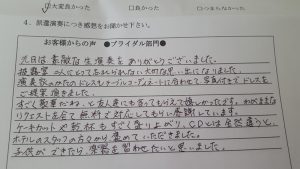 ①大変良かった　□良かった　□つまらなかった
4．派遣演奏につき感想をお聞かせ下さい。
お客様からの声　●ブライダル部門●
先日は素敵な生演奏をありがとうございました。
披露宴の人にとって忘れられない大切な思い出になりました。
演奏家さんのドレスもテーブルコーディネートに合わせて写真付きでドレスを
ご提案頂きました。
すごく豪華だね、と友人達にも言ってもらえて嬉しかったです。わがままな
リクエストも全て無料で対応してもらい感謝しています。
ケーキカットや乾杯もすごく盛り上がり、CDとは全然違うと、
ホテルのスタッフの方々から褒めていただきました。
子供ができたら、楽器を習わせたいと思いました。